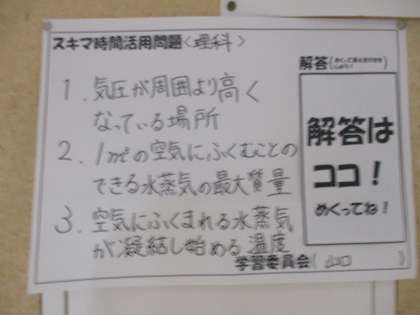 スキマ時間活用問題〈理科〉
解答
1. 気圧が周囲より高く
なっている場所
2. 1㎥の空気にふくむことの
できる水蒸気の最大質量
3. 空気にふくまれる水蒸気
が凝結し始める温度
解答は
ココ！
めくってね！
学習委員会( 山口 )